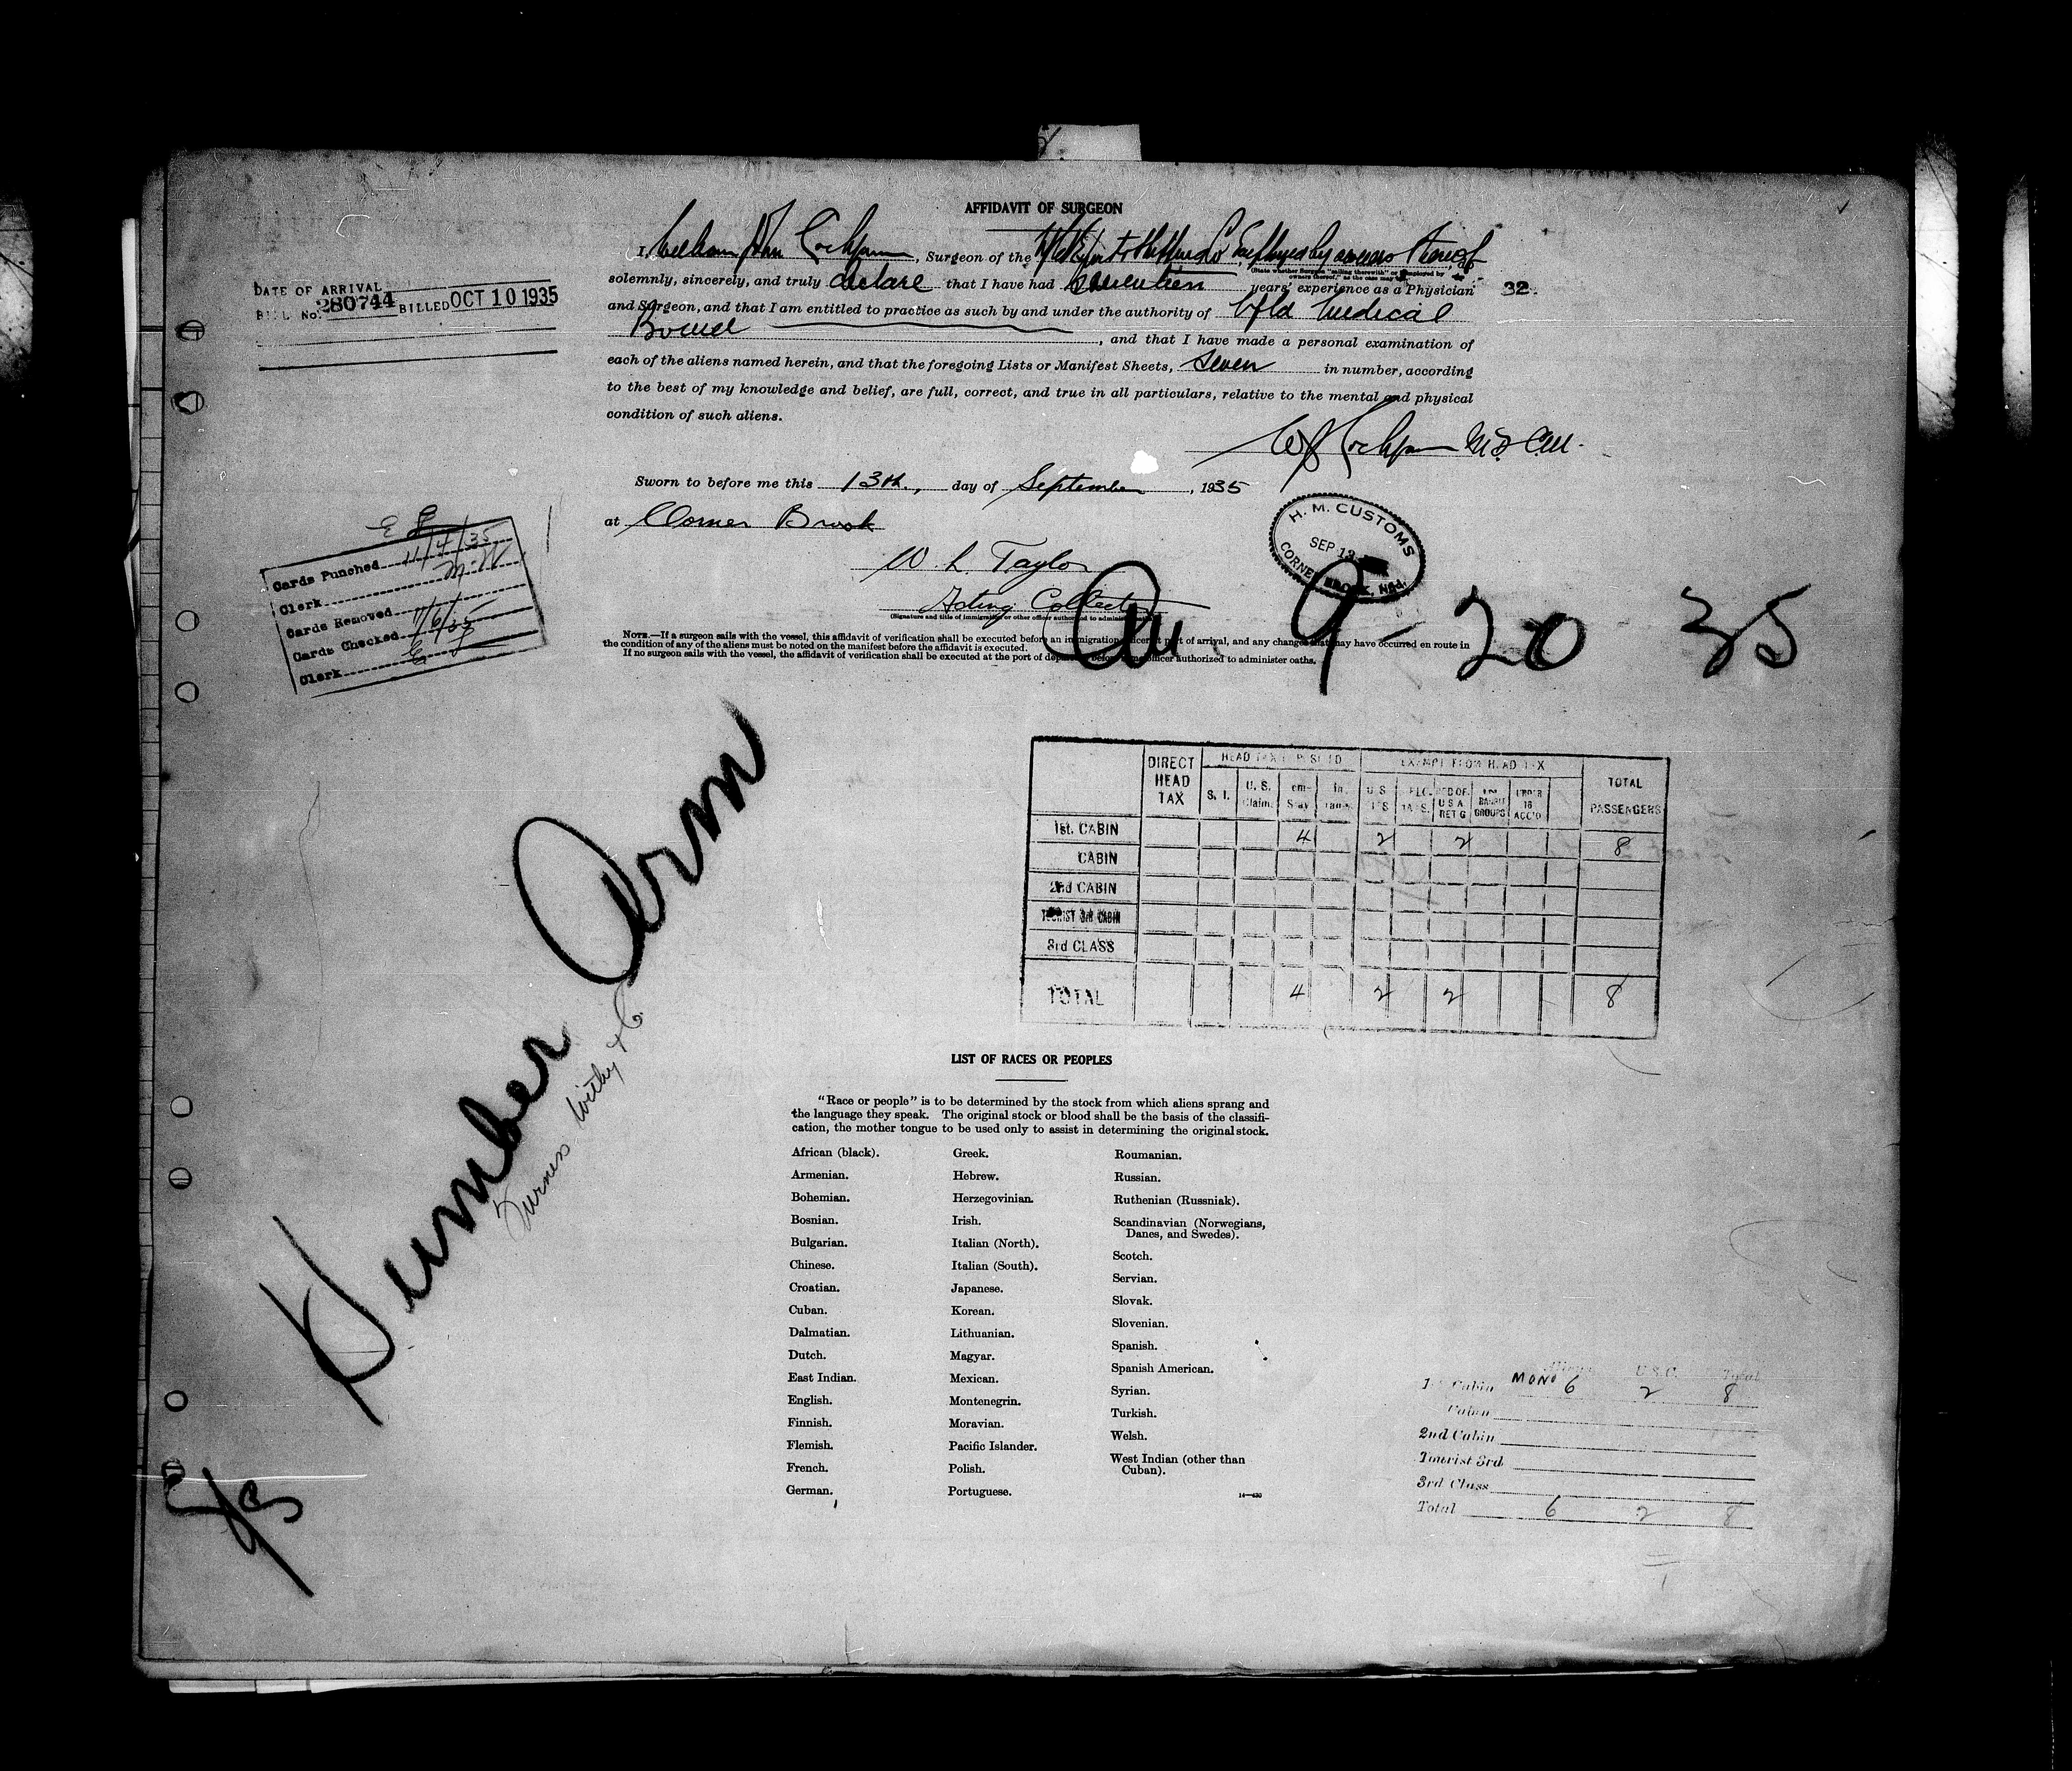 AFFIDAVIT OF SURGEON
I, William John, Surgeon of the Employed by owners thereof
(State whether Surgeon "sailing therewith" or "employed by owners thereof," as the case may be)
solemnly, sincerely, and truly declare that I have had seventeen years' experience as a Physician 32.
and Surgeon, and that I am entitled to practice as such by and under the authority of Nfld Medical
Board, and that I have made a personal examination of
each of the aliens named herein, and that the foregoing Lists or Manifest Sheets, seven in number, according
to the best of my knowledge and belief, are full, correct, and true in all particulars, relative to the mental and physical
condition of such aliens.
DATE OF ARRIVAL
BILL No. 280744 BILLED OCT 10 1935
Sworn to before me this 13th., day of September, 1935
at Corner Brook
W. L. Taylor
Acting Collector
(Signature and title of immigration or other officer authorized to administer
H. M. CUSTOMS
SEP 13
CORNER BROOK, Nfd.
Cards Punched 11/4/35
Clerk M.W
Cards Removed
Cards Checked 11/6/35
Clerk
NOTE.—If a surgeon sails with the vessel, this affidavit of verification shall be executed before an immigration officer at port of arrival, and any changes that may have occurred en route in
the condition of any of the aliens must be noted on the manifest before the affidavit is executed.
If no surgeon sails with the vessel, the affidavit of verification shall be executed at the port of departure before some officer authorized to administer oaths.
9-20 35
Humber Arm
Furness Withy & Co
DIRECT HEAD TAX
HEAD TAX
EXEMPT FROM HEAD TAX
TOTAL PASSENGERS
S. I.
U. S. Claim.
1st. CABIN 4 2 2 8
CABIN
2nd CABIN
TOURIST 3rd CABIN
3rd CLASS
TOTAL 4 2 2 8
LIST OF RACES OR PEOPLES
"Race or people" is to be determined by the stock from which aliens sprang and
the language they speak. The original stock or blood shall be the basis of the classifi-
cation, the mother tongue to be used only to assist in determining the original stock.
African (black).
Armenian.
Bohemian.
Bosnian.
Bulgarian.
Chinese.
Croatian.
Cuban.
Dalmatian.
Dutch.
East Indian.
English.
Finnish.
Flemish.
French.
German.
Greek.
Hebrew.
Herzegovinian.
Irish.
Italian (North).
Italian (South).
Japanese.
Korean.
Lithuanian.
Magyar.
Mexican.
Montenegrin.
Moravian.
Pacific Islander.
Polish.
Portuguese.
Roumanian.
Russian.
Ruthenian (Russniak).
Scandinavian (Norwegians,
Danes, and Swedes).
Scotch.
Servian.
Slovak.
Slovenian.
Spanish.
Spanish American.
Syrian.
Turkish.
Welsh.
West Indian (other than
Cuban).
Aliens U.S.C. Total
1st Cabin MONO 6 2 8
Cabin
2nd Cabin
Tourist 3rd
3rd Class
Total 6 2 8